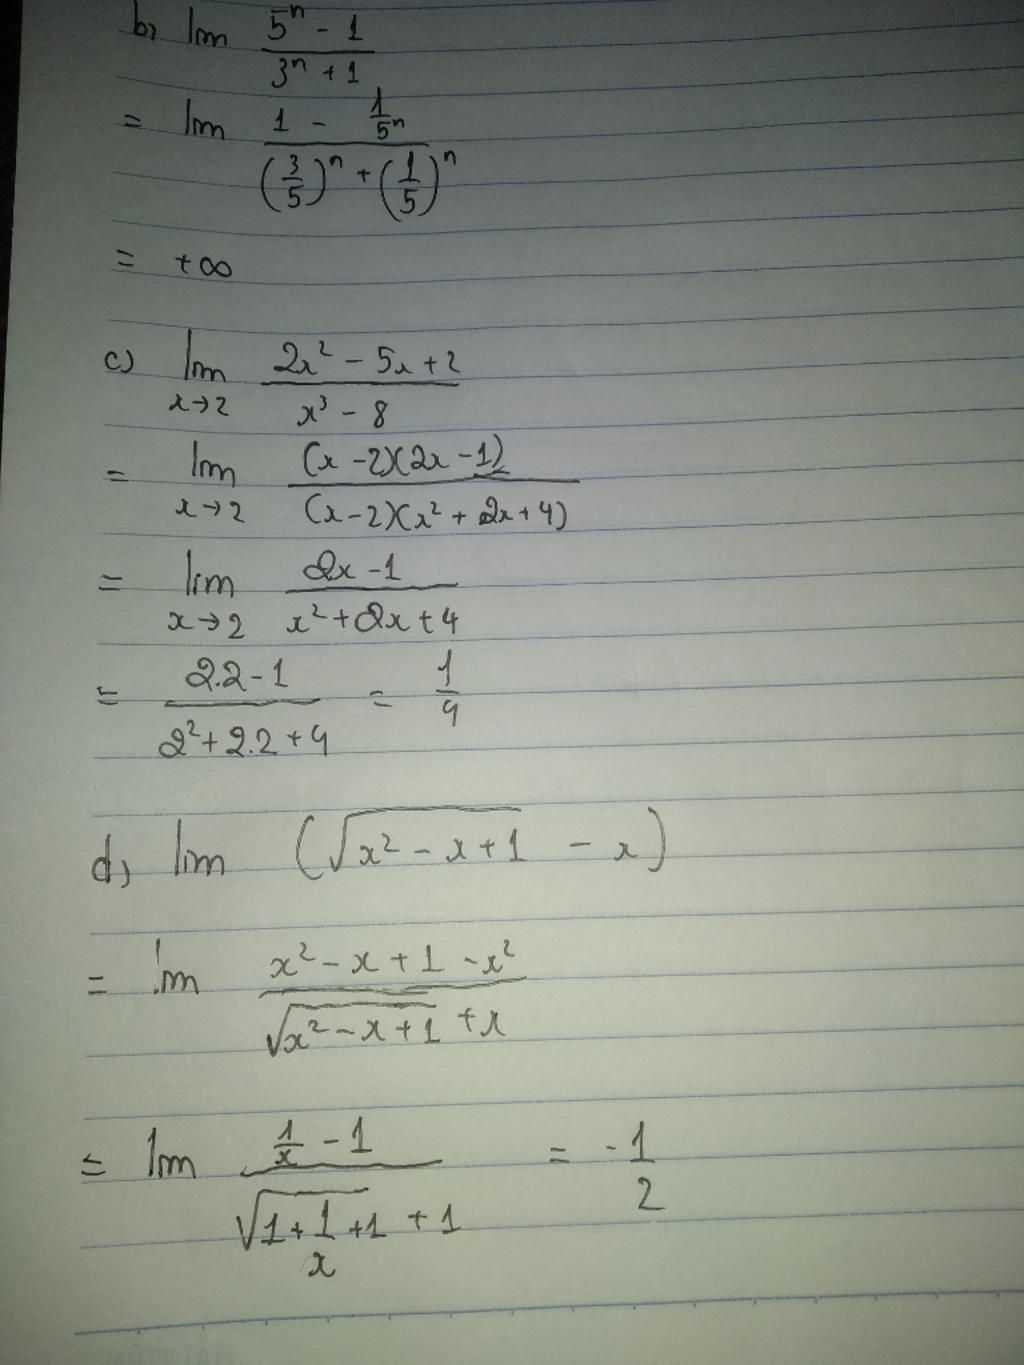 b, lim (5^n - 1)/(3^n + 1)
= lim (1 - 1/5^n)/((3/5)^n + (1/5)^n)
= +∞
c) lim x→2 (2x² - 5x + 2)/(x³ - 8)
= lim x→2 ((x - 2)(2x - 1))/((x - 2)(x² + 2x + 4))
= lim x→2 (2x - 1)/(x² + 2x + 4)
= (2.2 - 1)/(2² + 2.2 + 4) = 1/4
d, lim (√(x² - x + 1) - x)
= lim (x² - x + 1 - x²)/(√(x² - x + 1) + x)
= lim (1/x - 1)/(√(1 + 1/x + 1) + 1) = -1/2